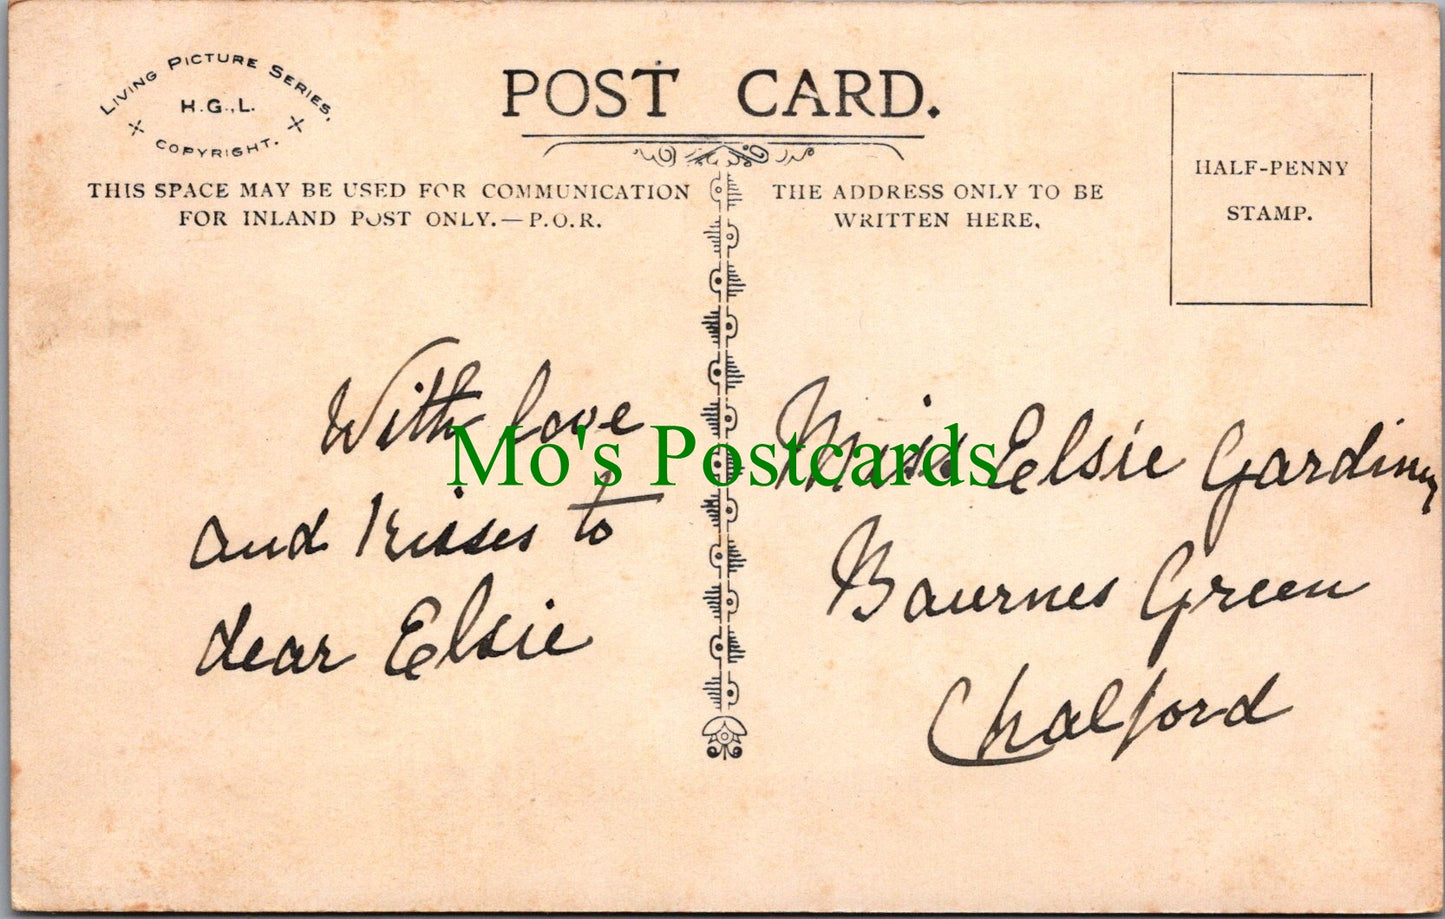 LIVING PICTURE SERIES,
H.G.,L.
COPYRIGHT.
POST CARD.
THIS SPACE MAY BE USED FOR COMMUNICATION
FOR INLAND POST ONLY.—P.O.R.
THE ADDRESS ONLY TO BE
WRITTEN HERE.
HALF-PENNY
STAMP.
With love
and kisses to
dear Elsie
Mo's Postcards
Miss Elsie Gardiner
Bournes Green
Chalford